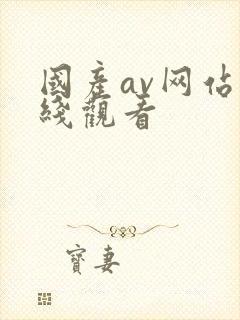 國產av网佔
綫觀看
寶妻